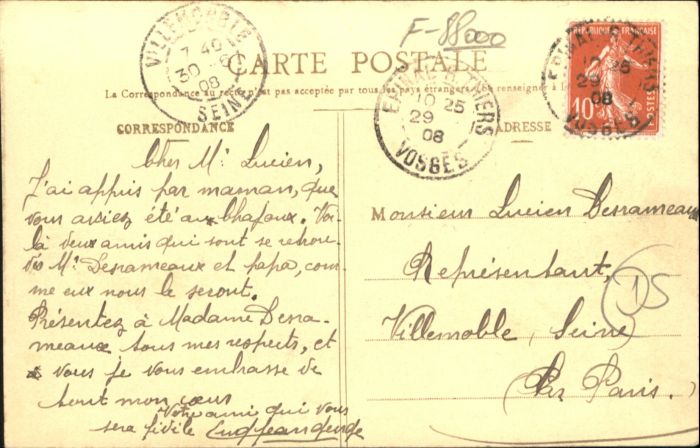 F-88000
VILLEMOMBLE
7 40
30 -6
08
SEINE
CARTE POSTALE
La Correspondance au recto n'est pas acceptée par tous les pays étrangers. (Se renseigner à la
EPINAL THIERS
10 25
29
08
VOSGES
REPUBLIQUE FRANÇAISE
10
POSTES
EPINAL THIERS
10 25
29
08
VOSGES
CORRESPONDANCE
Cher Mr Lucien,
J'ai appris par maman, que
vous aviez été au Chapaux. Voi-
là deux amis qui sont se retrou-
vés Mr Desrameaux et papa, com
me eux nous le seront.
Présentez à Madame Desra-
meaux tous mes respects, et
à vous je vous embrasse de
tout mon cœur
Votre ami qui vous
sera fidile
ADRESSE
Monsieur Lucien Desrameaux
Représentant,
Villemoble, Seine
(Per Paris.)
15